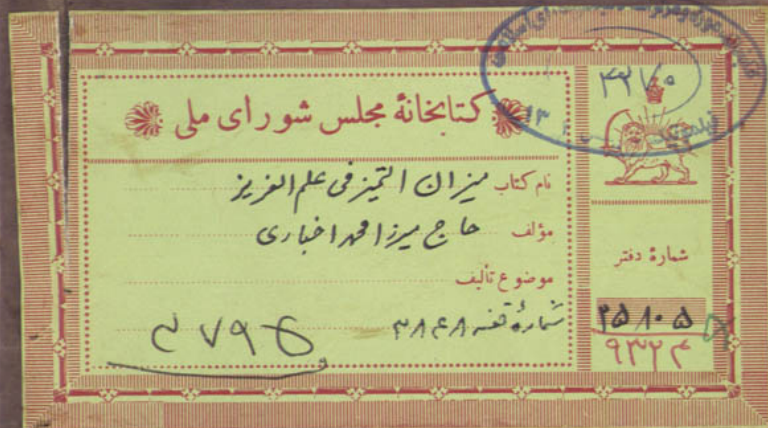 کتابخانهٔ مجلس شورای ملی
۴۲۷۰
نام کتاب میزان التمیز فی علم العزیز
مؤلف حاج میرزا محمد اخباری
موضوع تألیف
شمارهٔ قفسه ۳۸۴۸
شمارهٔ دفتر
۲۵۸۰۵
۹۳۲۴